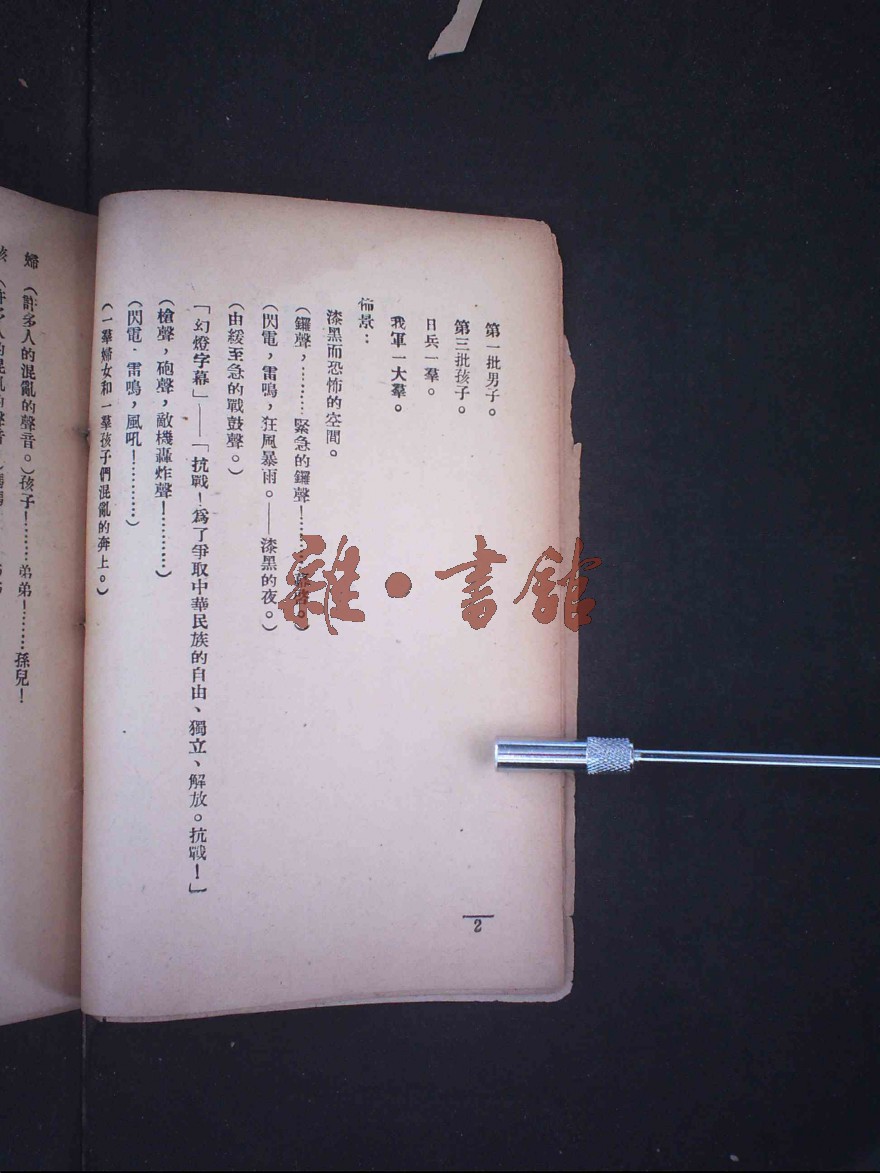 第一批男子。
第三批孩子。
日兵一羣。
我軍一大羣。
佈景：
漆黑而恐怖的空間。
（鑼聲，………緊急的鑼聲！………幕啓。）
（閃電，雷鳴，狂風暴雨。——漆黑的夜。）
（由緩至急的戰鼓聲。）
「幻燈字幕」——「抗戰！爲了爭取中華民族的自由、獨立、解放。抗戰！」
（槍聲，砲聲，敵機轟炸聲！…………）
（閃電．雷鳴，風吼！…………）
（一羣婦女和一羣孩子們混亂的奔上。）
2
婦（許多人的混亂的聲音。）孩子！………弟弟！………孫兒！
孩（許多人的混亂的聲音。）媽媽
雜·書館